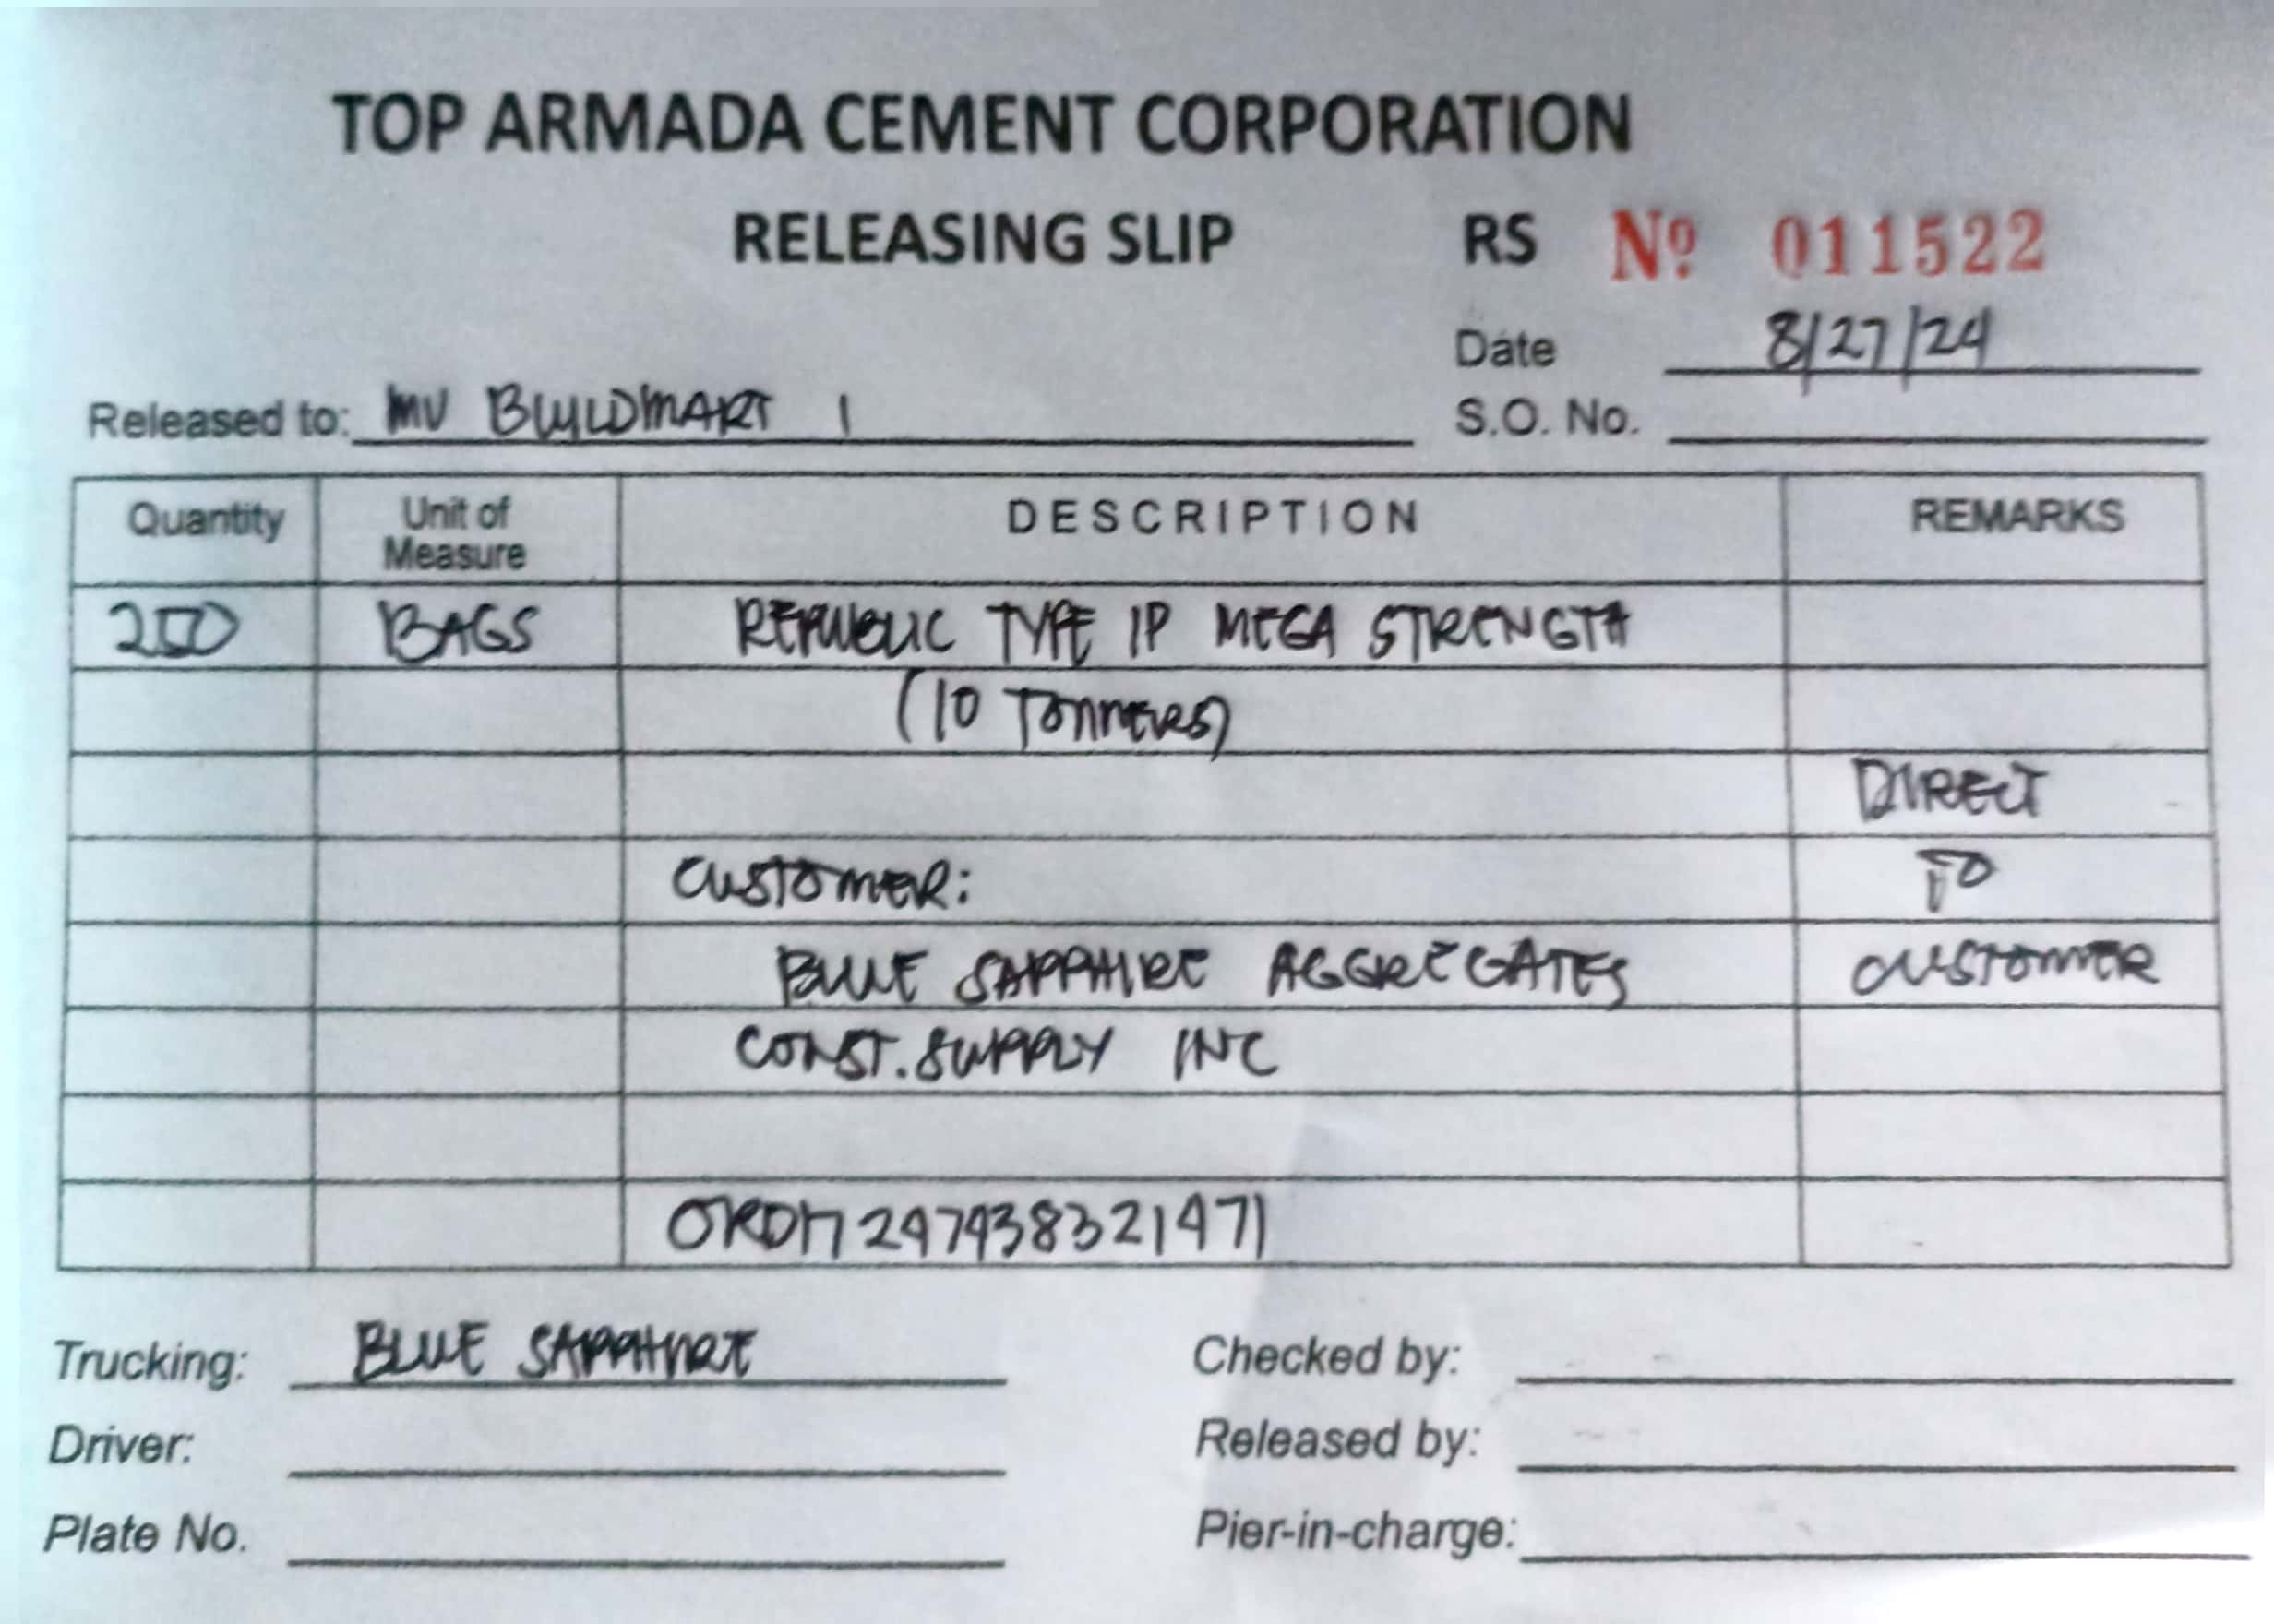 TOP ARMADA CEMENT CORPORATION
RELEASING SLIP RS Nº 011522
Date 8/27/24
Released to: MV BUILDMART 1 S.O. No.
Quantity Unit of Measure DESCRIPTION REMARKS
250 BAGS REPUBLIC TYPE 1P MEGA STRENGTH
(10 TONNERS)
DIRECT
CUSTOMER: TO
BLUE SAPPHIRE AGGREGATES CUSTOMER
CONST. SUPPLY INC
ORD17247438321471
Trucking: BLUE SAPPHIRE Checked by:
Driver: Released by:
Plate No. Pier-in-charge: